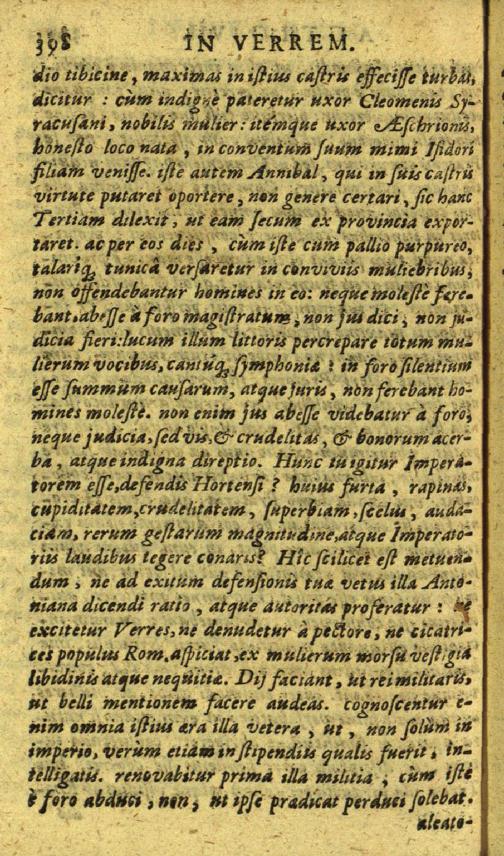 398 IN VERREM.
dio tibicine, maximas in istius castris effecisse turbas,
dicitur : cùm indignè pateretur uxor Cleomenis Sy-
racusani, nobilis mulier: itémque uxor Æschrionis,
honesto loco nata, in conventum suum mimi Isidori
filiam venisse. iste autem Annibal, qui in suis castris
virtute putaret oportere, non genere certari, sic hanc
Tertiam dilexit, ut eam secum ex provincia expor-
taret. ac per eos dies, cùm iste cum pallio purpureo,
talariq; tunicâ versaretur in conviviis muliebribus,
non offendebantur homines in eo: neque molestè fere-
bant, abesse à foro magistratum, non jus dici, non ju-
dicia fieri: lucum illum littoris percrepare totum mu-
lierum vocibus, cantúq; symphoniæ : in foro silentium
esse summum causarum, atque juris, non ferebant ho-
mines molestè. non enim jus abesse videbatur à foro,
neque judicia, sed vis, & crudelitas, & bonorum acer-
ba, atque indigna direptio. Hunc tu igitur Impera-
torem esse, defendis Hortensi ? huius furta, rapinas,
cupiditatem, crudelitatem, superbiam, scelus, auda-
ciam, rerum gestarum magnitudine, atque Imperato-
riis laudibus tegere conaris? Hîc scilicet est metuen-
dum, ne ad exutum defensionis tuæ vetus illa Anto-
niana dicendi ratio, atque autoritas proferatur : ne
excitetur Verres, ne denudetur à pectore, ne cicatri-
ces populus Rom. aspiciat, ex mulierum morsu vestigia
libidinis atque nequitiæ. Dij faciant, ut rei militaris,
ut belli mentionem facere audeas. cognoscentur e-
nim omnia istius æra illa vetera, ut, non solùm in
imperio, verùm etiam in stipendiis qualis fuerit, in-
telligatis. renovabitur prima illa militia, cùm iste
è foro abduci, non, ut ipse prædicat perduci solebat.
aleato-